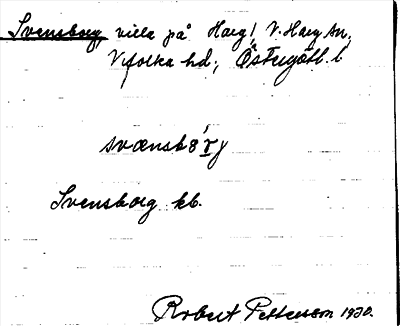 Svensborg, villa på Harg, V. Harg sn,
Vifolka hd, Östergötl. l
Svensborg kb.
Robert Pettersson 1930.